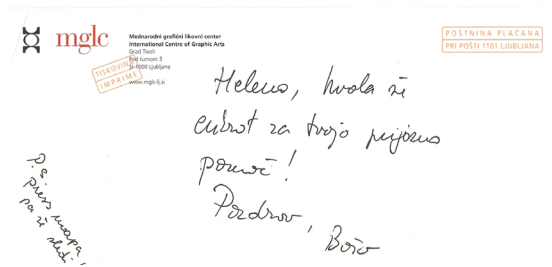 mglc
Mednarodni grafični likovni center
International Centre of Graphic Arts
Grad Tivoli
Pod turnom 3
SI-1000 Ljubljana
www.mglc-lj.si
TISKOVINA
IMPRIME
POŠTNINA PLAČANA
PRI POŠTI 1101 LJUBLJANA
Heleno, hvala še
enkrat za tvojo prijazno
pomoč!
Pozdrav,
Božo
P.S.
press mapa
pa že sledi